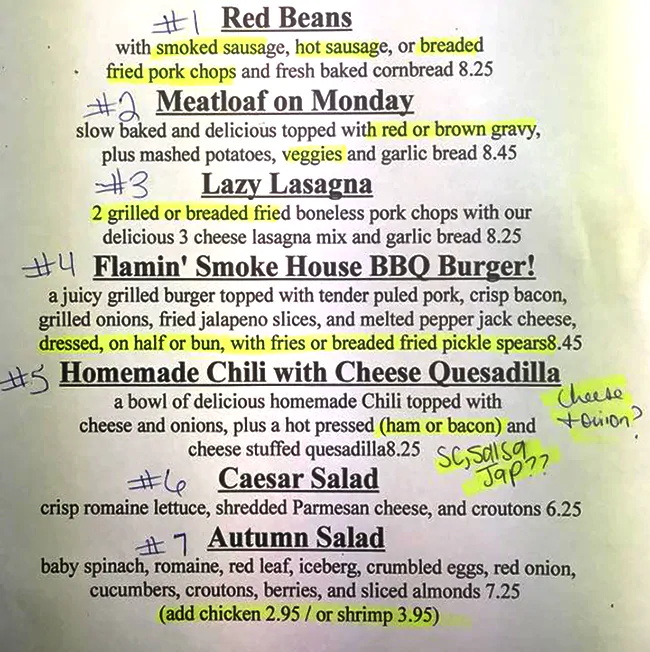 #1 Red Beans
with smoked sausage, hot sausage, or breaded
fried pork chops and fresh baked cornbread 8.25
#2 Meatloaf on Monday
slow baked and delicious topped with red or brown gravy,
plus mashed potatoes, veggies and garlic bread 8.45
#3 Lazy Lasagna
2 grilled or breaded fried boneless pork chops with our
delicious 3 cheese lasagna mix and garlic bread 8.25
#4 Flamin' Smoke House BBQ Burger!
a juicy grilled burger topped with tender puled pork, crisp bacon,
grilled onions, fried jalapeno slices, and melted pepper jack cheese,
dressed, on half or bun, with fries or breaded fried pickle spears8.45
#5 Homemade Chili with Cheese Quesadilla
a bowl of delicious homemade Chili topped with
cheese and onions, plus a hot pressed (ham or bacon) and
cheese stuffed quesadilla8.25
Cheese
+ onion?
SC, Salsa
Jap??
#6 Caesar Salad
crisp romaine lettuce, shredded Parmesan cheese, and croutons 6.25
#7 Autumn Salad
baby spinach, romaine, red leaf, iceberg, crumbled eggs, red onion,
cucumbers, croutons, berries, and sliced almonds 7.25
(add chicken 2.95 / or shrimp 3.95)